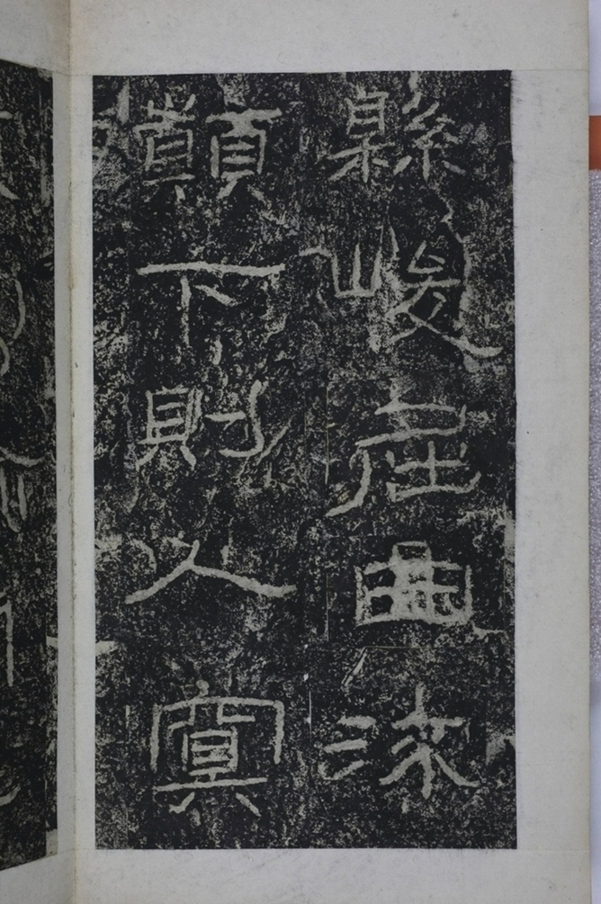 縣峻屈曲流
顛下則入冥